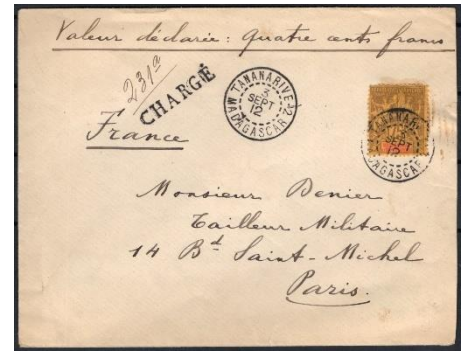 Valeur déclarée : quatre cents francs
231a
CHARGÉ
TANANARIVE-12
3
SEPT
12
MADAGASCAR
TANANAR
3
SEPT
12
DAGASCAR
France
Monsieur Denier
Tailleur Militaire
14 Bd Saint-Michel
Paris.